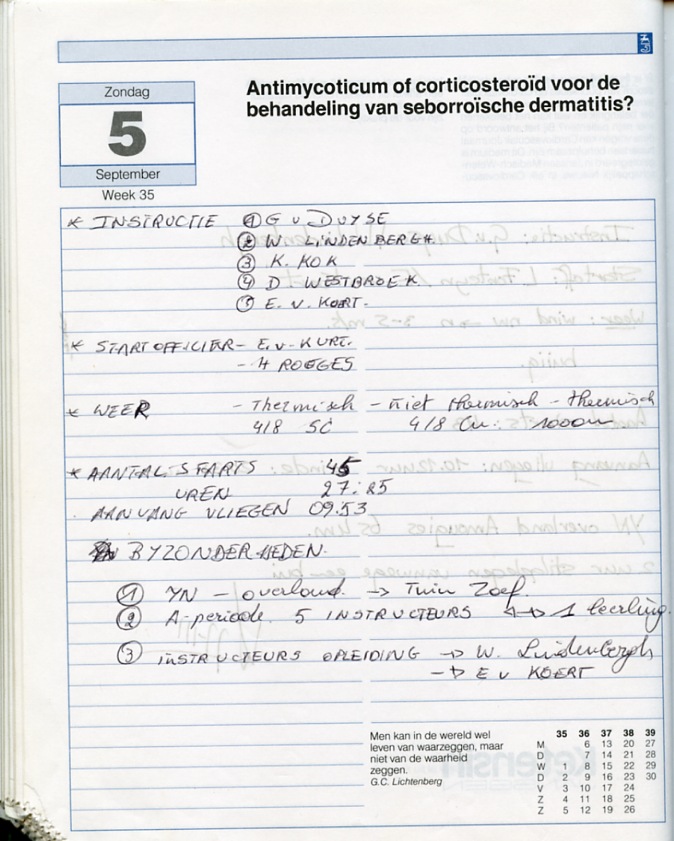 Zondag
5
September
Week 35
Antimycoticum of corticosteroïd voor de
behandeling van seborroïsche dermatitis?
* INSTRUCTIE ① G v DUYSE
② W. LINDENBERGH
③ K. KOK
④ D. WESTBROEK
⑤ E. V. KOERT.
* STARTOFFICIER - E. v. KURT.
- H ROEGES
* WEER - Thermisch - niet thermisch - thermisch
4/8 SC 4/8 Cu. 1000m
* AANTAL STARTS 45
UREN 27:25
AANVANG VLIEGEN 09.53
BYZONDERHEDEN.
① YN - overland. → Tuin Zoef.
② A-periode. 5 INSTRUCTEURS ↔ 1 leerling.
③ INSTRUCTEURS OPLEIDING → W. Lindenbergh
→ E v KOERT
Men kan in de wereld wel
leven van waarzeggen, maar
niet van de waarheid
zeggen.
G.C. Lichtenberg
35 36 37 38 39
M 6 13 20 27
D 7 14 21 28
W 1 8 15 22 29
D 2 9 16 23 30
V 3 10 17 24
Z 4 11 18 25
Z 5 12 19 26